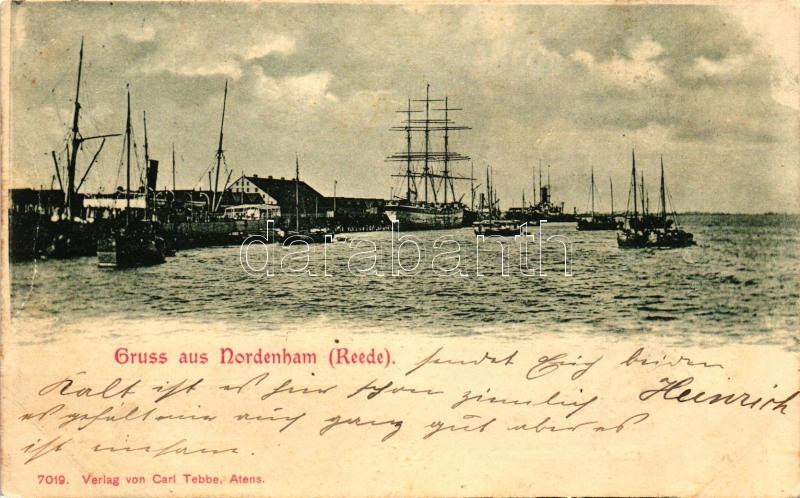 darabanth
Gruss aus Nordenham (Reede). sendet Euch beiden
Heinrich
Kalt ist es hier schon ziemlich
es gefällt mir auch ganz gut aber es
ist einsam.
7019. Verlag von Carl Tebbe, Atens.